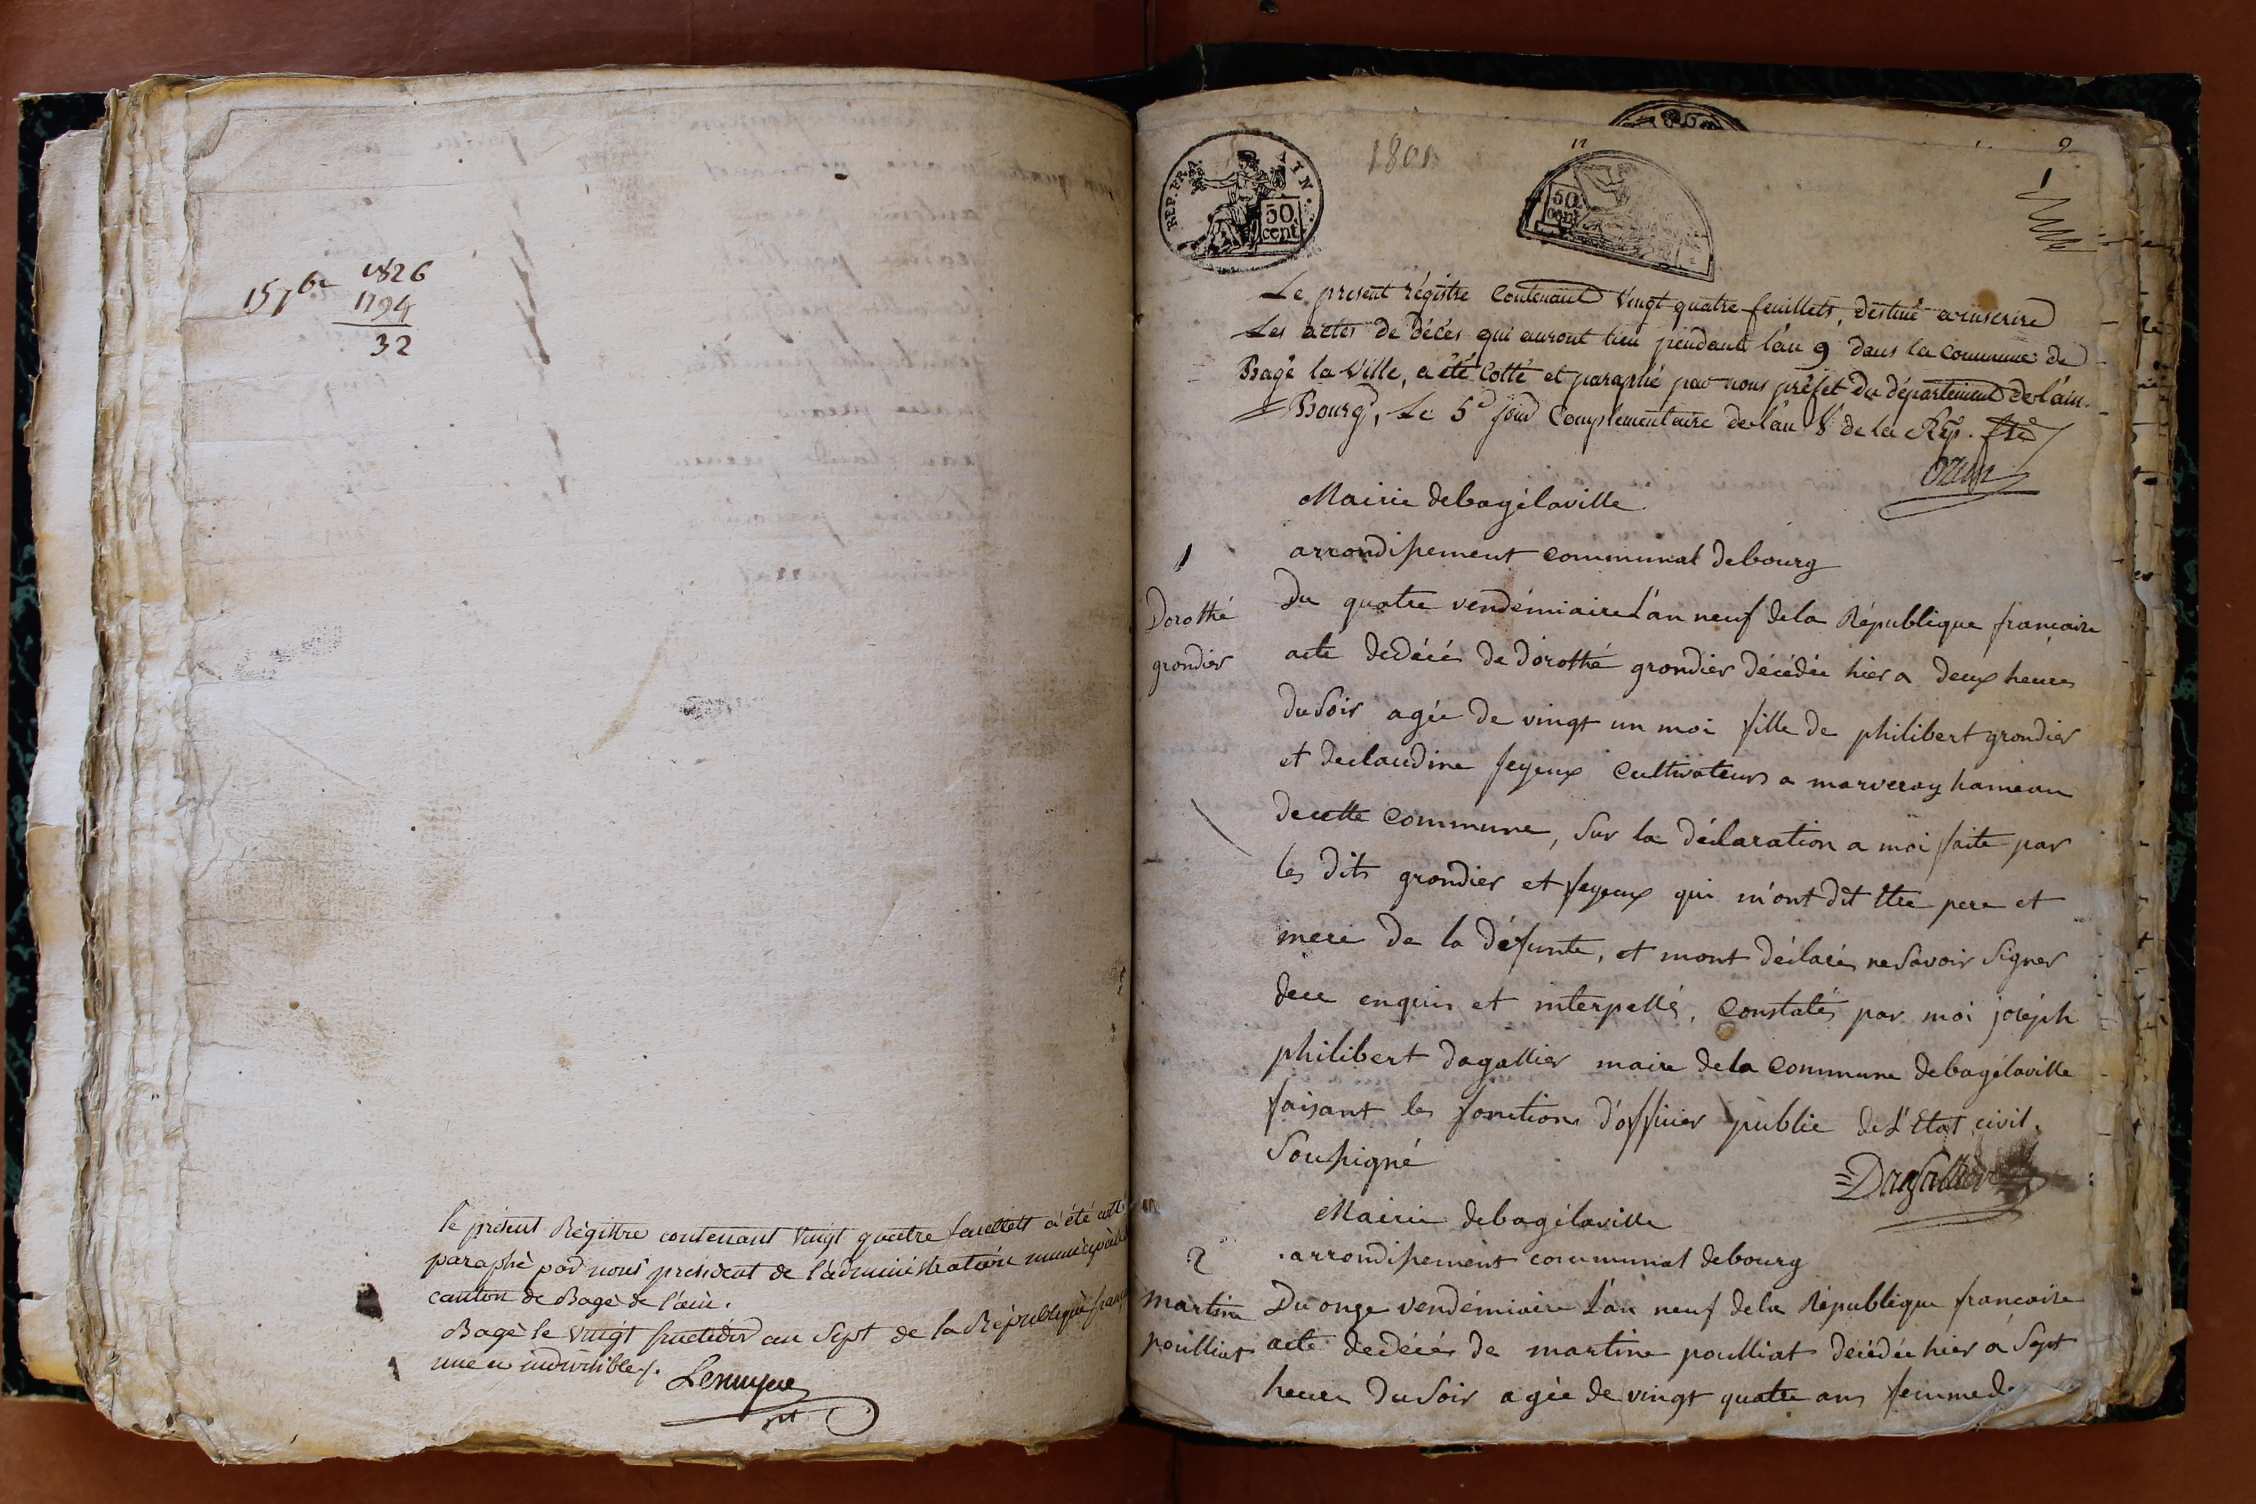 1826
157
1794
32
le présent Régistre contenant Vingt quatre feuillets a été cotté
paraphé par nous président de l'administration municipale
canton de Bagé de l'ain.
Bagé le vingt fructidor an Sept de la République franç
une et indivisible.
REP. FRA. AIN.
50 cent
50 cent
9
1
Le present régistre Contenant Vingt quatre feuillets, destiné a inscrire
Les actes de décés qui auront lieu pendant l'an 9 dans la commune de
Bagé la Ville, a été Cotté et paraphé par nous préfet du département de l'ain.
Bourg, Le 5e jour Complementaire de l'an 8 de la Rép. fse
Ozun
Mairie debagélaville
1
arrondissement communal debourg
Dorothé
grondier
Du quatre vendémiaire L'an neuf dela République francaise
acte dedécés de dorothé grondier décédée hier a deux heures
du Soir agée de vingt un moi fille de philibert grondier
et declaudine feyeux Cultivateurs a marveray hameau
decette Commune, Sur la déclaration a moi faite par
les dits grondier et feyeux qui m'ont dit être pere et
mere de la défunte, et mont déclarés ne Savoir Signer
dece enquis et interpellés, Constatés par moi joséph
philibert dagallier maire dela Commune debagélaville
faisant les fonctions d'officier public de L'Etat civil.
Soussigné
Dagallier
Mairie debagélaville
2
arrondissement communal debourg
martine
poulliat
Du onze vendémiaire L'an neuf dela République francaise
acte dedécés de martine poulliat décédée hier à Sept
heures du Soir agée de vingt quatre ans femme de